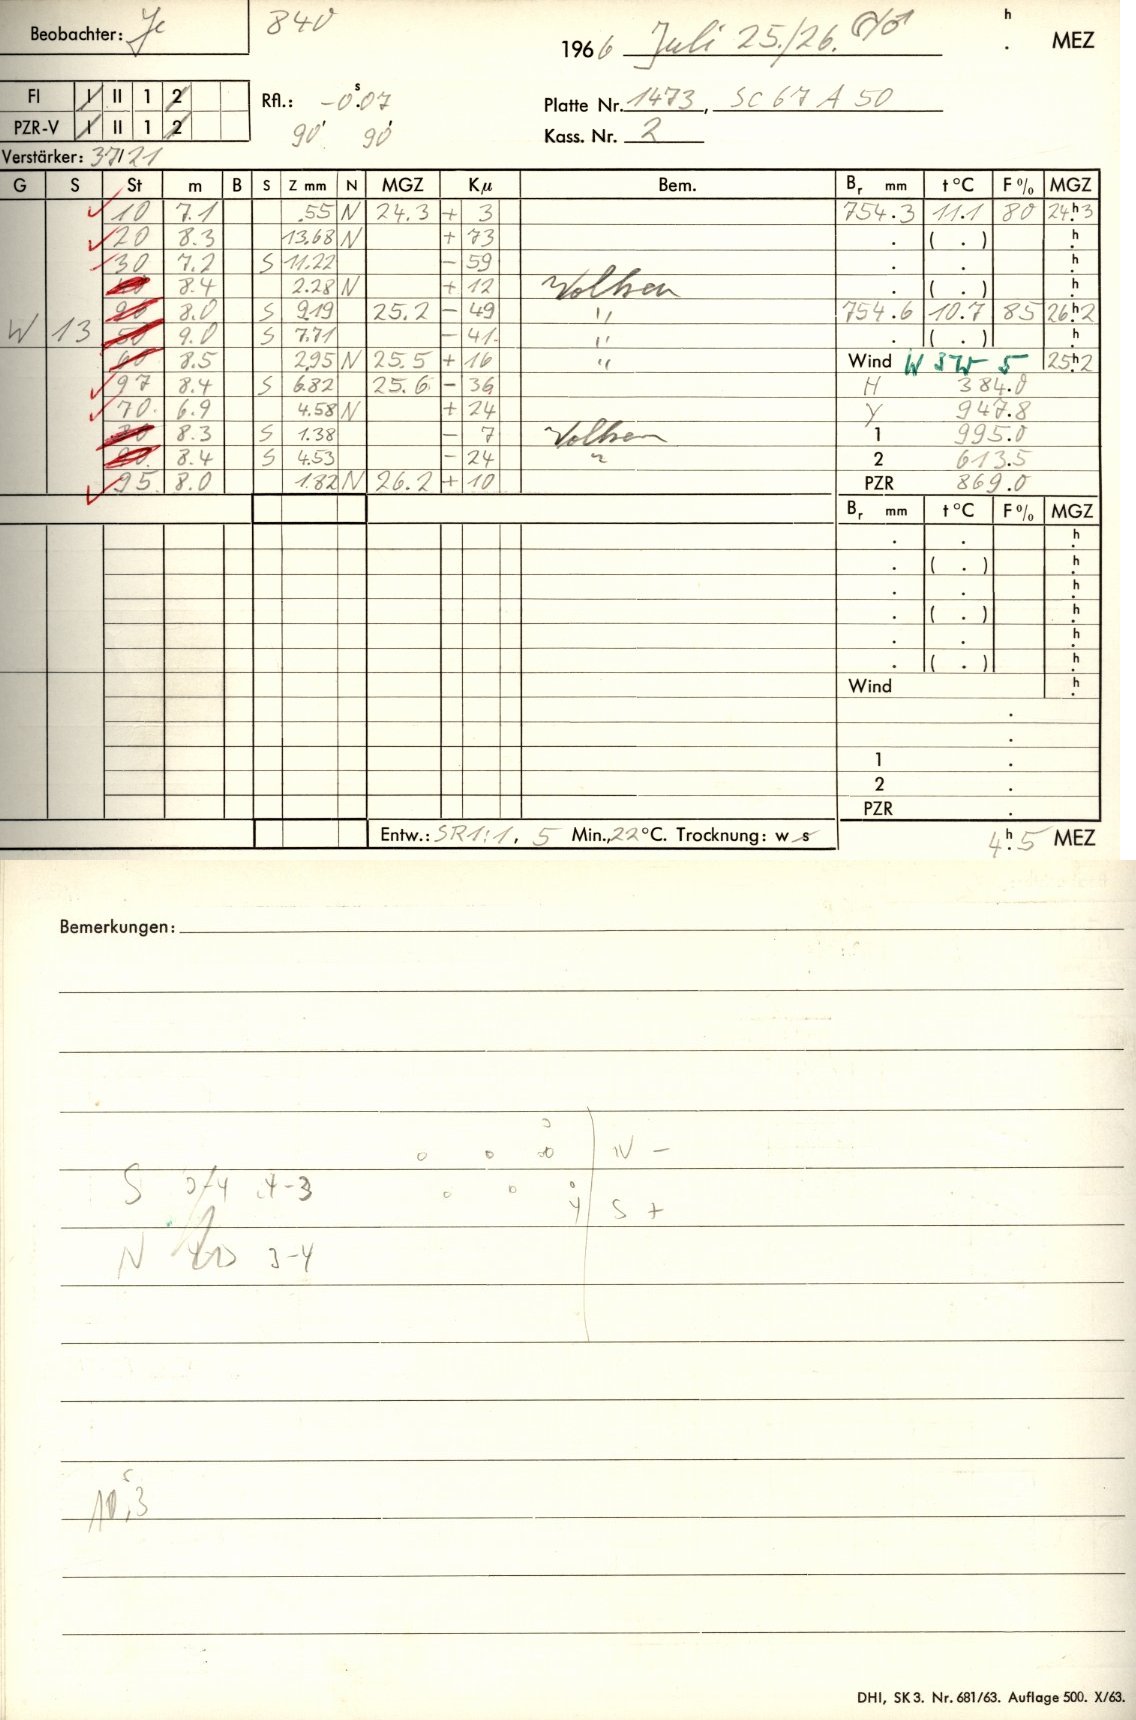 Beobachter: Je 840
1966 Juli 25./26. h . MEZ
FI I II 1 2 Rfl.: -0.s07 Platte Nr. 1473, SC 67 A 50
PZR-V I II 1 2 90' 90' Kass. Nr. 2
Verstärker: 37/21
G S St m B S Z mm N MGZ Kμ Bem. Br mm t°C F% MGZ
10 7.1 .55 N 24.3 + 3 754.3 11.1 80 24.h3
20 8.3 13.68 N + 73 . ( . ) h.
30 7.2 S 11.22 - 59 . . h.
8.4 2.28 N + 12 Wolken . ( . ) h.
8.0 S 9.19 25.2 - 49 " 754.6 10.7 85 26.h2
W 13 9.0 S 7.71 - 41 " . ( . ) h.
8.5 2.95 N 25.5 + 16 " Wind W SW 5 25.h2
97 8.4 S 6.82 25.6 - 36 H 384.0
70. 6.9 4.58 N + 24 Y 947.8
8.3 S 1.38 - 7 Wolken 1 995.0
8.4 S 4.53 - 24 " 2 613.5
95 8.0 1.82 N 26.2 + 10 PZR 869.0
Br mm t°C F% MGZ
. . h.
. ( . ) h.
. . h.
. ( . ) h.
. . h.
. ( . ) h.
Wind h.
.
.
1 .
2 .
PZR .
Entw.: SR1:1, 5 Min., 22°C. Trocknung: w s 4.h5 MEZ
Bemerkungen:
3
N -
S 3/4 4-3
4 S +
N 3-4
10,s3
DHI, SK 3. Nr. 681/63. Auflage 500. X/63.